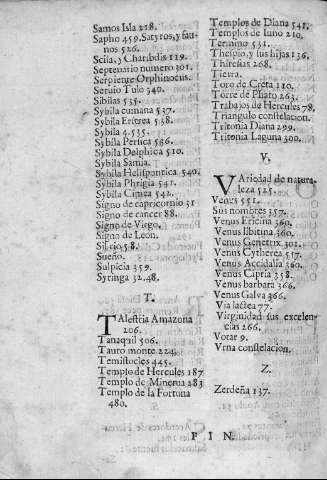 Samos Isla 218.
Sapho 459. Satyros, y fau-
nos 526.
Scila, y Charibdis 119.
Septenario numero 301.
Serpiente Orphinocus.
Seruio Tulo 340.
Sibilas 535.
Sybila cumana 537.
Sybila Eritrea 538.
Sybila 4.535.
Sybila Persica 536.
Sybila Delphica 510.
Sybila Samia.
Sybila Helispontica 540.
Sybila Phrigia 541.
Sybila Cimea 542.
Signo de capricornio 31
Signo de cancer 88.
Signo de Virgo.
Signo de Leon.
58.
Sueño.
Sulpicia 359.
Syringa 32.48.
T.
Talestria Amazona
206.
Tanaquil 506.
Tauro monte 224.
Temistocles 445.
Templo de Hercules 187
Templo de Minerua 283
Templo de la Fortuna
480.
Templos de Diana 541.
Templos de Iuno 210.
Termino 531.
Thespio, y sus hijas 136.
Thiresias 268.
Tierra.
Toro de Creta 110.
Torre de Pharo 263.
Trabajos de Hercules 78.
Triangulo constelacion.
Tritonia Diana 299.
Tritonia Laguna 300.
V.
Variedad de natura-
leza 525.
Venus 551.
Sus nombres 357.
Venus Ericina 360.
Venus libitina 360.
Venus Genetrix 302.
Venus Cytherea 517.
Venus Accidalia 360.
Venus Cipria 358.
Venus barbara 366.
Venus Galva 366.
Via lactea 77.
Virginidad sus excelen-
cias 266.
Votar 9.
Vrna constelacion.
Z.
Zerdeña 137.
FIN.